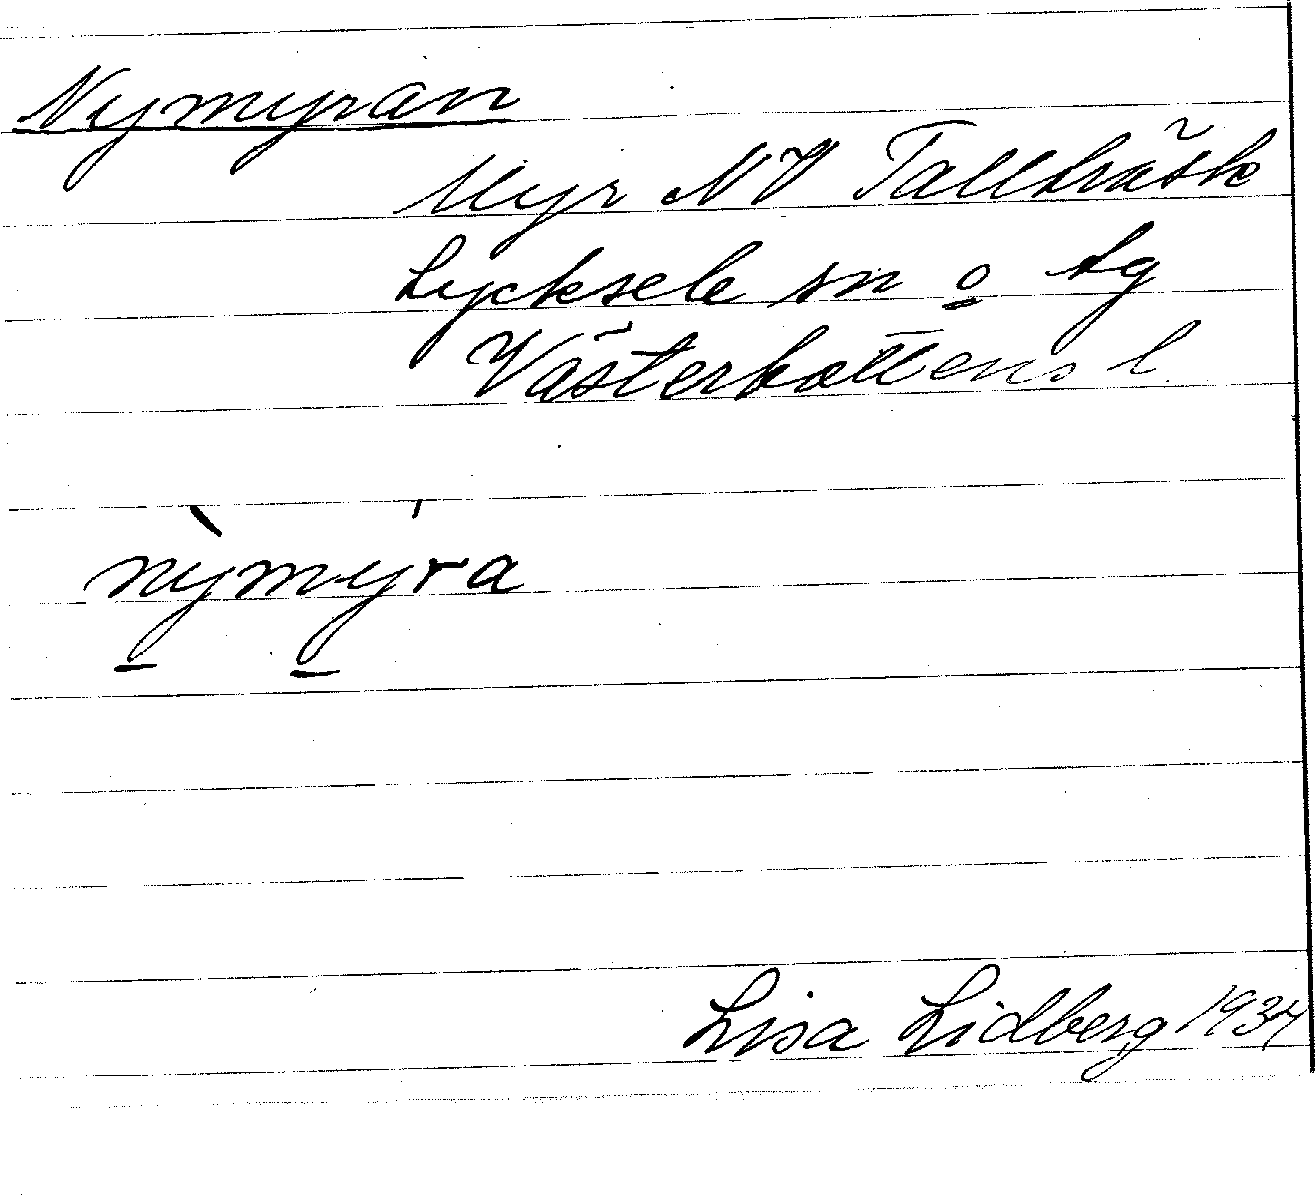 Nymyran
Myr NV Tallträsk
Lycksele sn o tg
Västerbottens l.
nỳmýra
Lisa Lidberg 1934